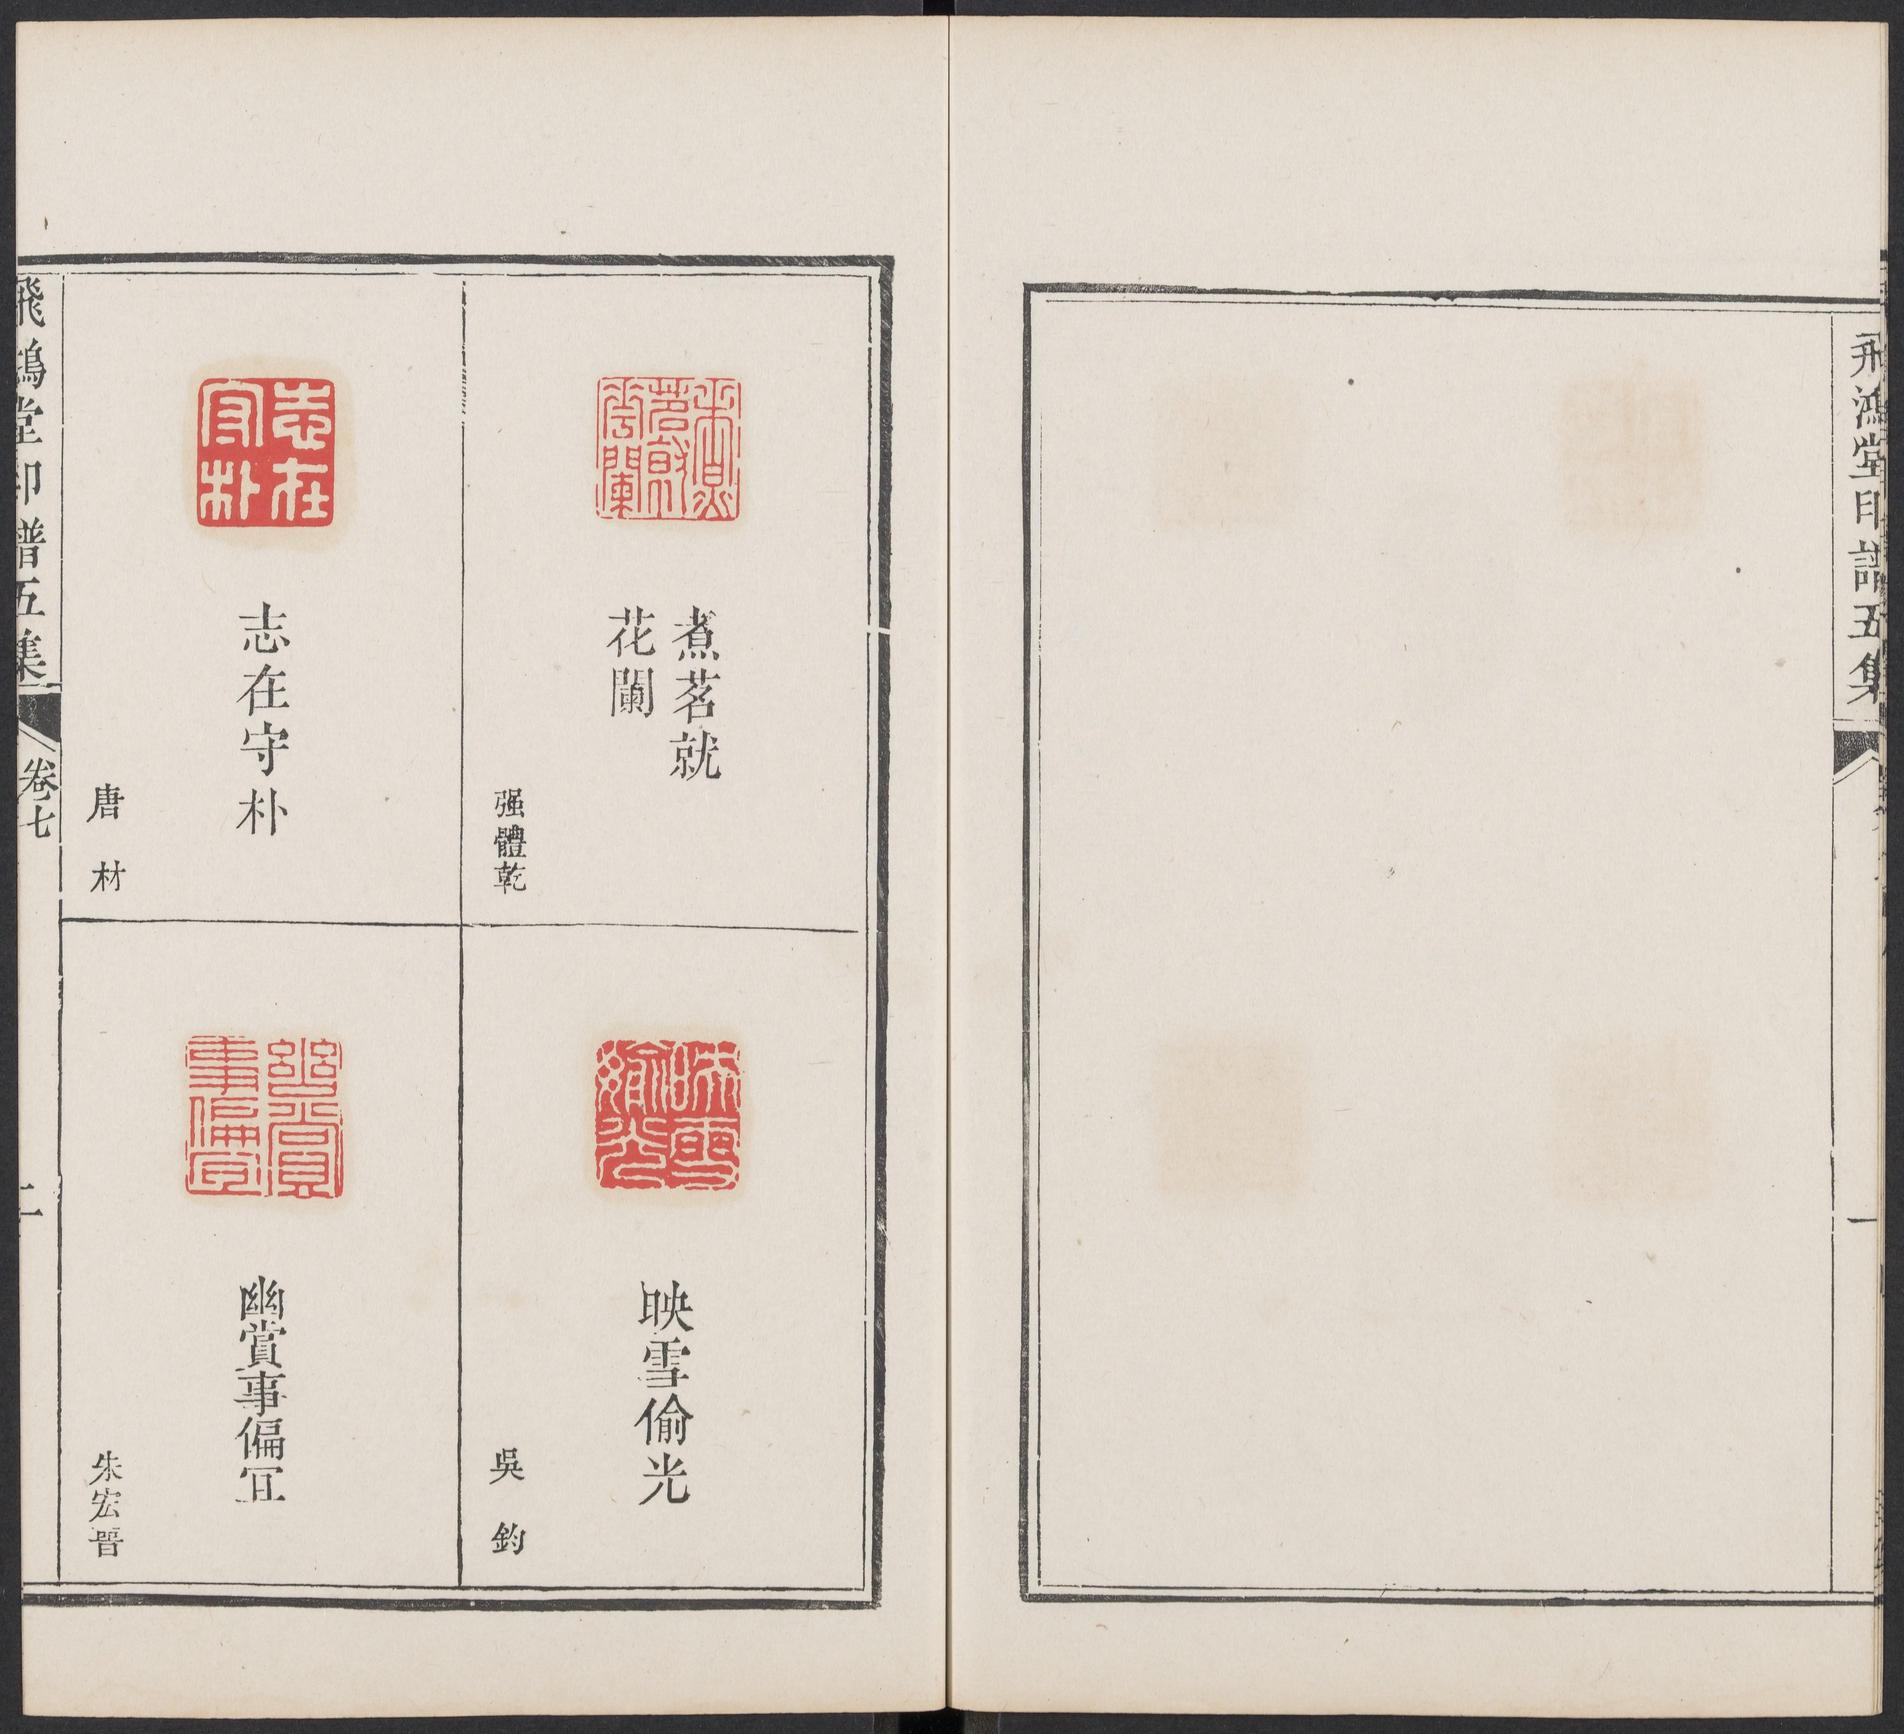 飛鴻堂印譜五集
一
煮茗就
花闌
强體乾
映雪偷光
吳鈞
志在守朴
唐材
幽賞事偏宜
朱宏晉
飛鴻堂印譜五集
卷七
二